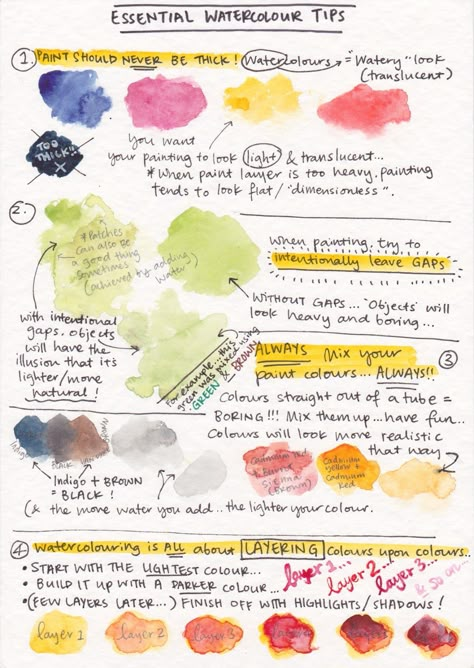 ESSENTIAL WATERCOLOUR TIPS
1. PAINT SHOULD NEVER BE THICK! Watercolours = "Watery" look
(translucent)
TOO
THICK!!
X
You want
your painting to look light & translucent...
* When paint layer is too heavy, painting
tends to look flat / "dimensionless".
2.
* Patches
can also be
a good thing
sometimes
(achieved by adding
water)
When painting, try to
intentionally leave GAPS
WITHOUT GAPS... 'Objects' will
look heavy and boring...
with intentional
gaps, objects
will have the
illusion that it's
lighter/more
natural!
For example... this
green was mixed using
GREEN & BROWN
3
ALWAYS Mix your
paint colours... ALWAYS!!
Colours straight out of a tube =
BORING!!! Mix them up... have fun...
Colours will look more realistic
that way
Indigo
BLACK
BROWN
Indigo + BROWN
= BLACK!
(& the more water you add.. the lighter your colour.
Cadmium red
& burnt
sienna
(Brown)
Cadmium
yellow &
Cadmium
red
4 Watercolouring is ALL about LAYERING colours upon colours..
• START WITH THE LIGHTEST COLOUR...
• BUILD IT UP WITH A DARKER COLOUR...
• (FEW LAYERS LATER...) FINISH OFF WITH HIGHLIGHTS/SHADOWS!
layer 1...
layer 2...
layer 3...
& so on...
layer 1
layer 2
layer 3
layer 4
layer 5